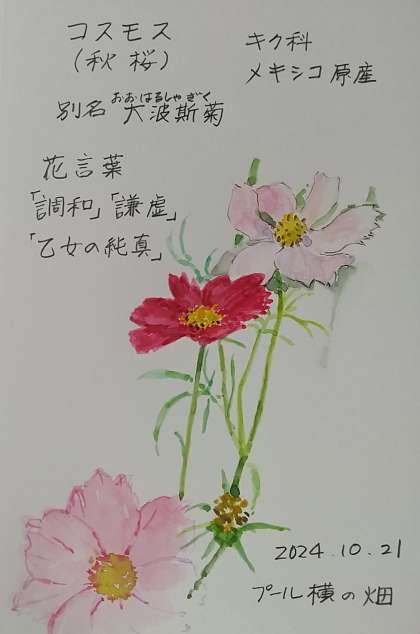 コスモス
(秋桜)
キク科
メキシコ原産
おおはるしゃぎく
別名 大波斯菊
花言葉
「調和」「謙虚」
「乙女の純真」
2024.10.21
プール横の畑